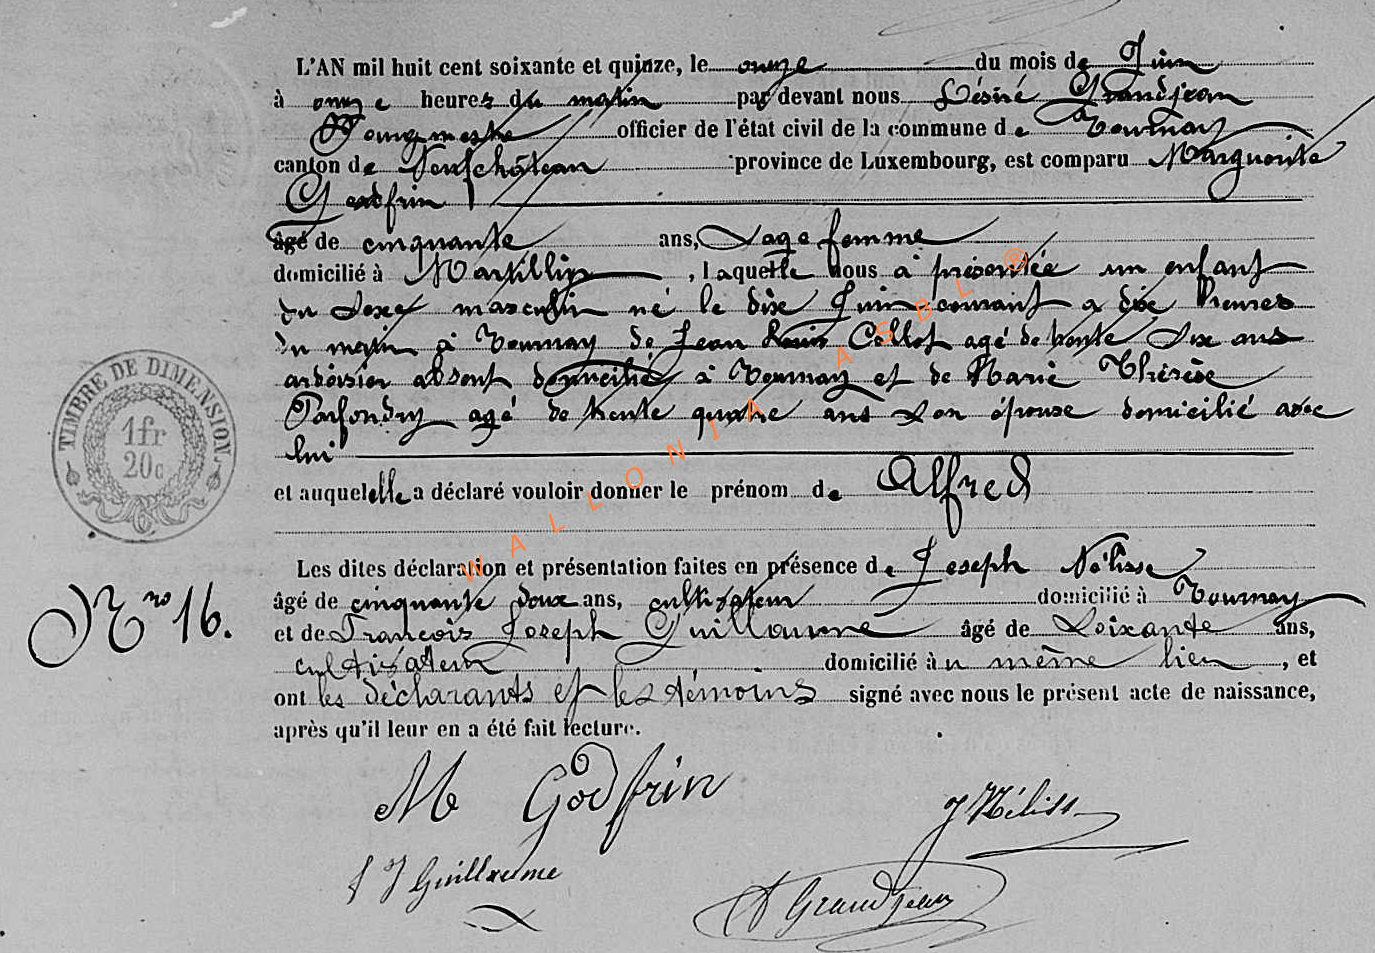 L'AN mil huit cent soixante et quinze, le onze du mois de Juin
à onze heures du matin par devant nous Désiré Grandjean
Bourgmestre officier de l'état civil de la commune de Tournay
canton de Neufchâteau province de Luxembourg, est comparu Marguerite
Godfrin
âgé de cinquante ans, Sage femme
domicilié à Martilly, laquelle nous a présentée un enfant
du sexe masculin né le dix Juin courant a dix heures
du matin à Tournay de Jean Louis Collot agé de trente six ans
ardoisier absent domicilié à Tournay et de Marie Thérèse
Parfondry agé de trente quatre ans son épouse domicilié avec
lui
et auquel elle a déclaré vouloir donner le prénom de Alfred
Les dites déclaration et présentation faites en présence de Joseph Nélisse
âgé de cinquante deux ans, cultivateur domicilié à Tournay
et de François Joseph Guillaume âgé de Soixante ans,
cultivateur domicilié à u même lieu, et
ont les déclarants et les témoins signé avec nous le présent acte de naissance,
après qu'il leur en a été fait lecture.
TIMBRE DE DIMENSION
1fr
20c
Nro 16.
M Godfrin
J Néliss
F J Guillaume
D Grandjean
WALLONIA ASBL ®